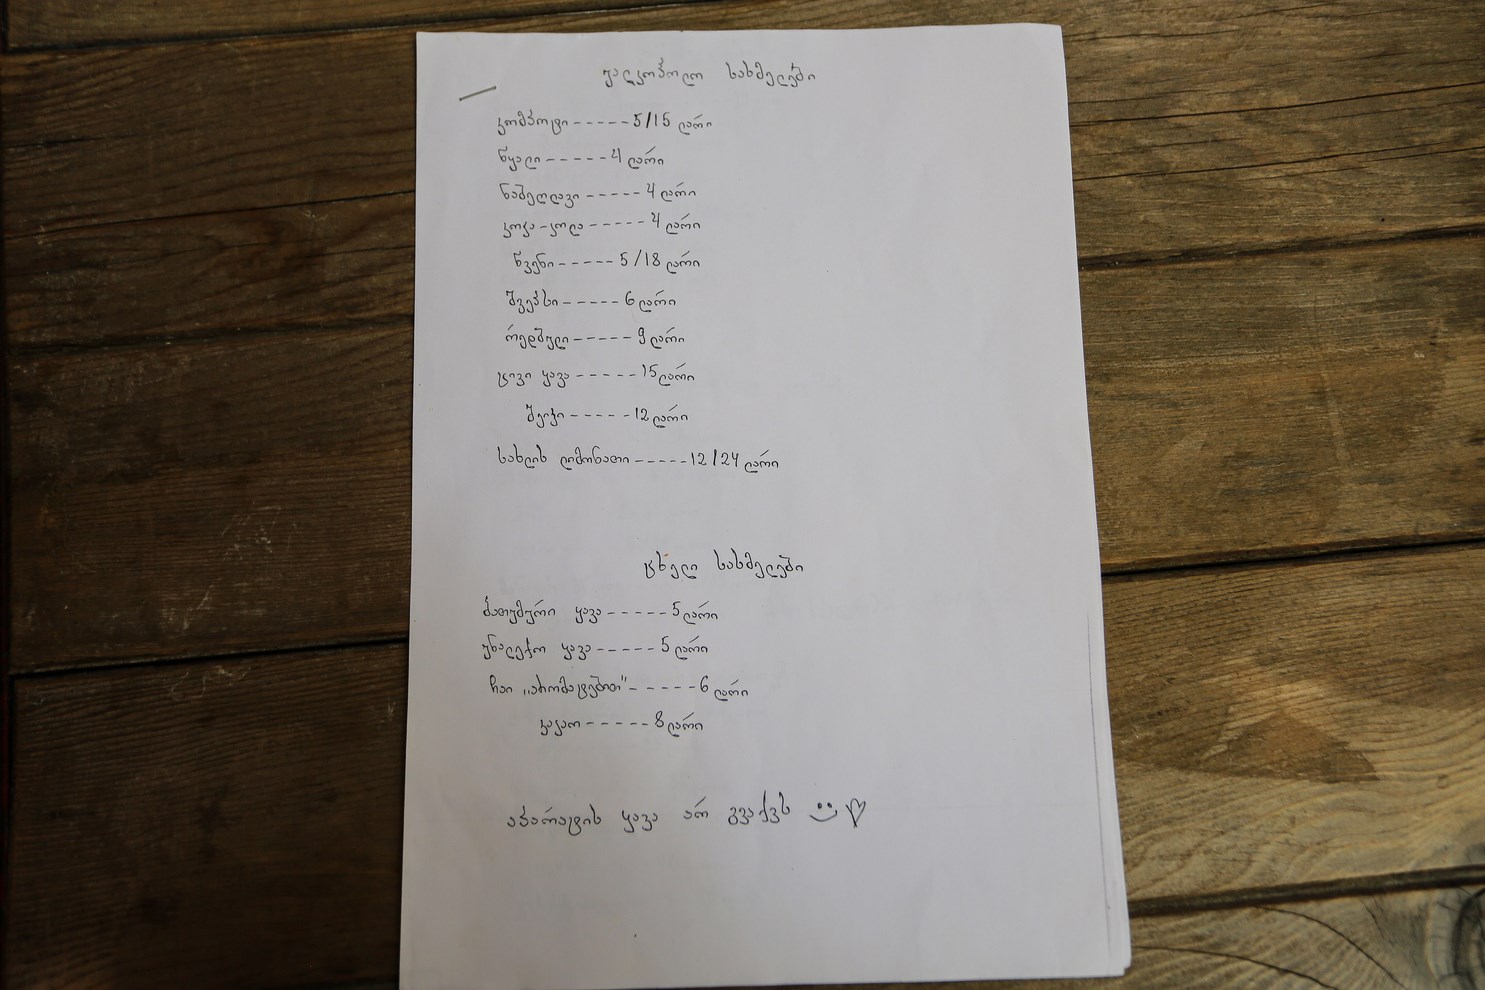 უალკოჰოლო სასმელები
კომპოტი-----5/15 ლარი
წყალი-----4 ლარი
ნაბეღლავი-----4 ლარი
კოკა-კოლა-----4 ლარი
წვენი-----5/18 ლარი
შვეპსი-----6 ლარი
რედბული-----9 ლარი
ცივი ყავა-----15 ლარი
შეიკი-----12 ლარი
სახლის ლიმონათი-----12/24 ლარი
ცხელი სასმელები
ბათუმური ყავა-----5 ლარი
უნალექო ყავა-----5 ლარი
ჩაი „არომატებით"-----6 ლარი
კაკაო-----8 ლარი
აპარატის ყავა არ გვაქვს